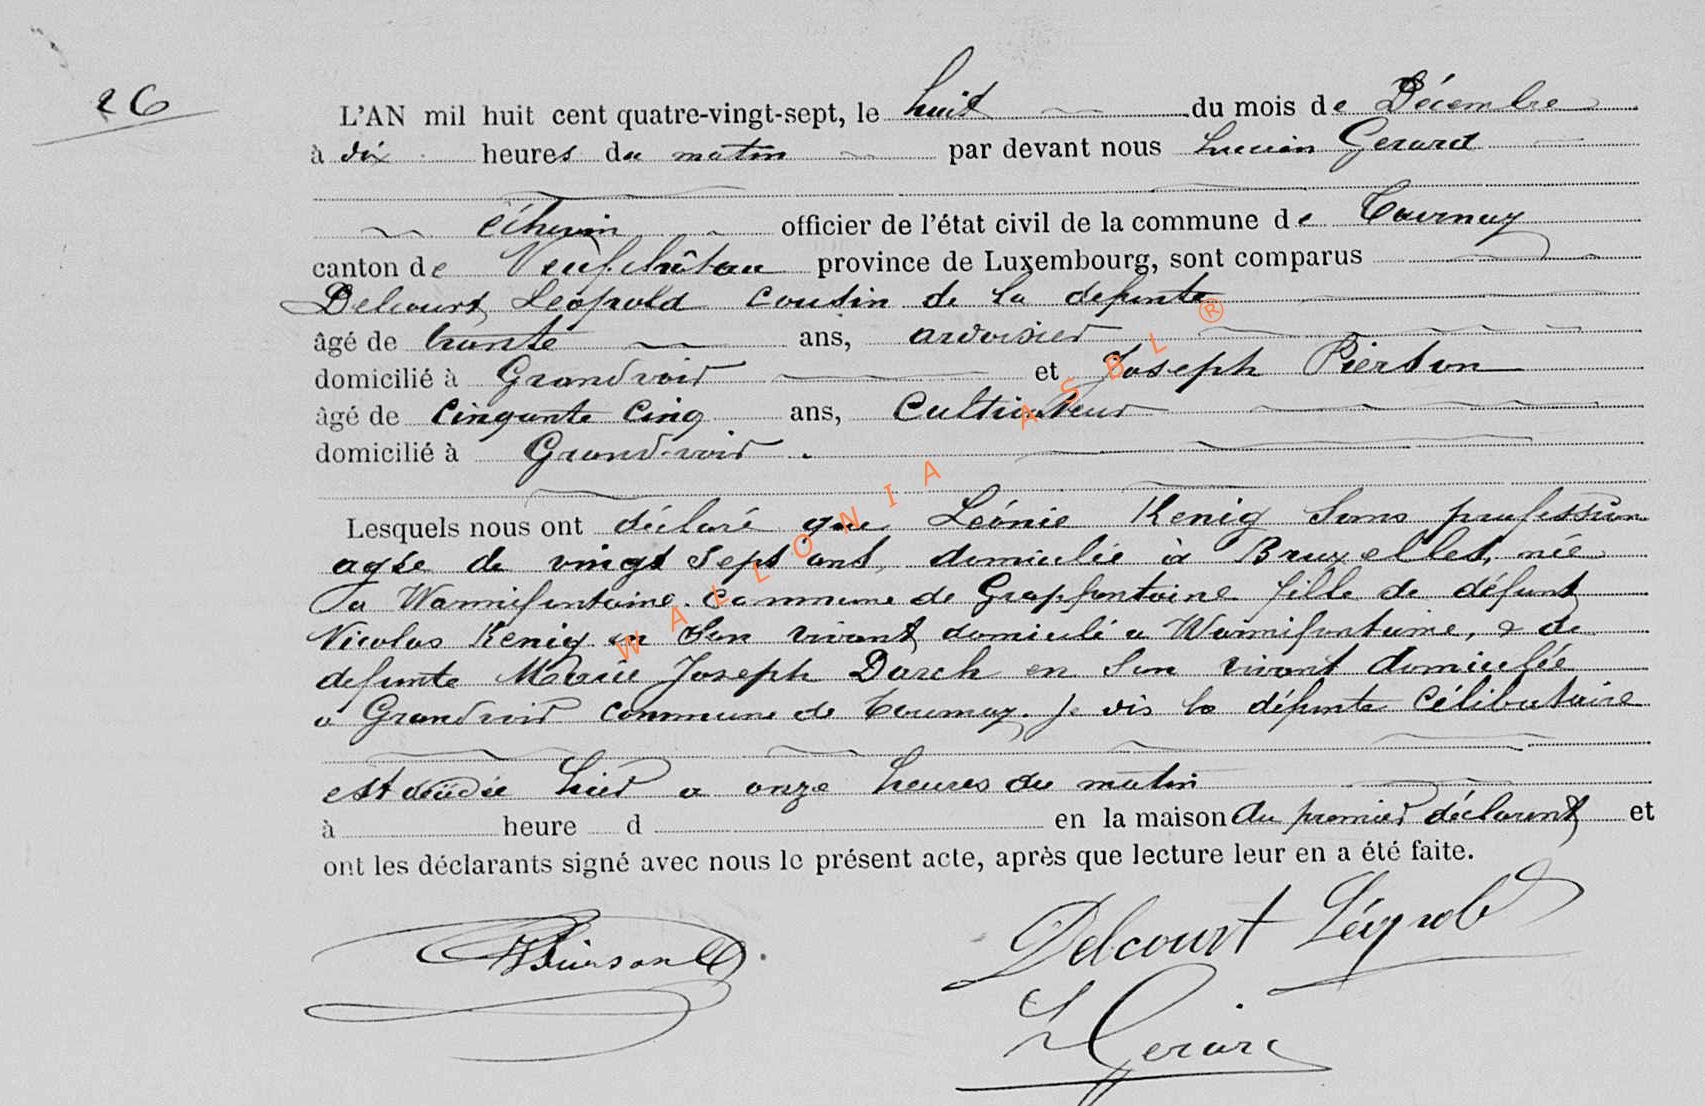 26
L'AN mil huit cent quatre-vingt-sept, le huit du mois de Décembre
à dix heures du matin par devant nous Lucien Gerard
échevin officier de l'état civil de la commune de Tournay
canton de Neufchâteau province de Luxembourg, sont comparus
Delcourt Léopold cousin de la defunte
âgé de trente ans, ardoisier
domicilié à Grandvoir et Joseph Pierson
âgé de cinquante cinq ans, cultivateur
domicilié à Grand-voir
Lesquels nous ont déclaré que Léonie Kenig sans profession
agée de vingt sept ans, domiciliée à Bruxelles, née
a Warmifontaine. commune de Grapfontaine fille de défunt
Nicolas Kenig en son vivant domicilié a Warmifontaine, & de
defunte Marie Joseph Darch en son vivant domiciliée
a Grandvoir commune de Tournay. Je dis la défunte célibataire
est décédée hier a onze heures du matin
à heure d en la maison du premier déclarant et
ont les déclarants signé avec nous le présent acte, après que lecture leur en a été faite.
JPierson Delcourt Léopold
L Gerard
WALLONIA ASBL ®